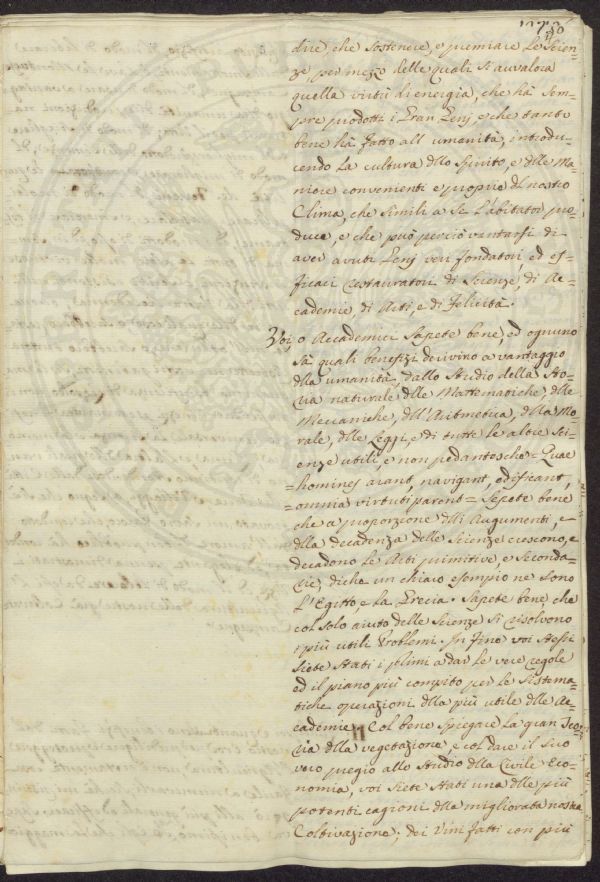 dire che sostenere, e premiare le Scien=
ze, per mezo delle quali si auvalora
quella virtù di energia, che hà sem=
pre prodotti i Gran Genj, e che tanto
bene hà fatto all umanità, introdu=
cendo la cultura dllo Spirito, e dlle Ma=
niere convenienti e proprie dl nostro
Clima, che simili a Se l'abitator pro=
duce, e che può perciò vantarsi di
aver avuti Genj veri fondatori ed ef=
ficaci restauratori di Scienze, di Ac=
cademie, di Arti, e di felicità.
Voi, o Accademici Sapete bene, ed ognuno
sà quali benefizi derivino a vantaggio
dlla umanità, dallo Studio della Sto=
ria naturale, dlle Mattematiche, dlle
Meccaniche, dll'Aritmetica, dlla Mo=
rale, dlle Leggi, e di tutte le altre Sci=
enze utili, e non pedantesche = Quae
= homines arant, navigant, edificant,
= omnia virtuti parent = Sapete bene
che a proporzione dlli Augumenti, e
dlla decadenza delle Scienze crescono, e
decadono le Arti primitive, e seconda=
rie, di che un chiaro esempio ne sono
l'Egitto, e la Grecia. Sapete bene, che
col solo aiuto delle Scienze si risolvono
i più utili Problemi. In fine voi stessi
siete stati i primi a dar le vere regole
ed il piano più compito per le sistema=
tiche operazioni dlla più utile dlle Ac=
cademie. Col bene spiegare la gran Teo=
ria dlla vegetazione, e col dare il suo
vero pregio allo Studio dlla Civile Eco=
nomia, voi siete stati una dlle più
potenti cagioni dlla migliorata nostra
Coltivazione; dei Vini fatti con più